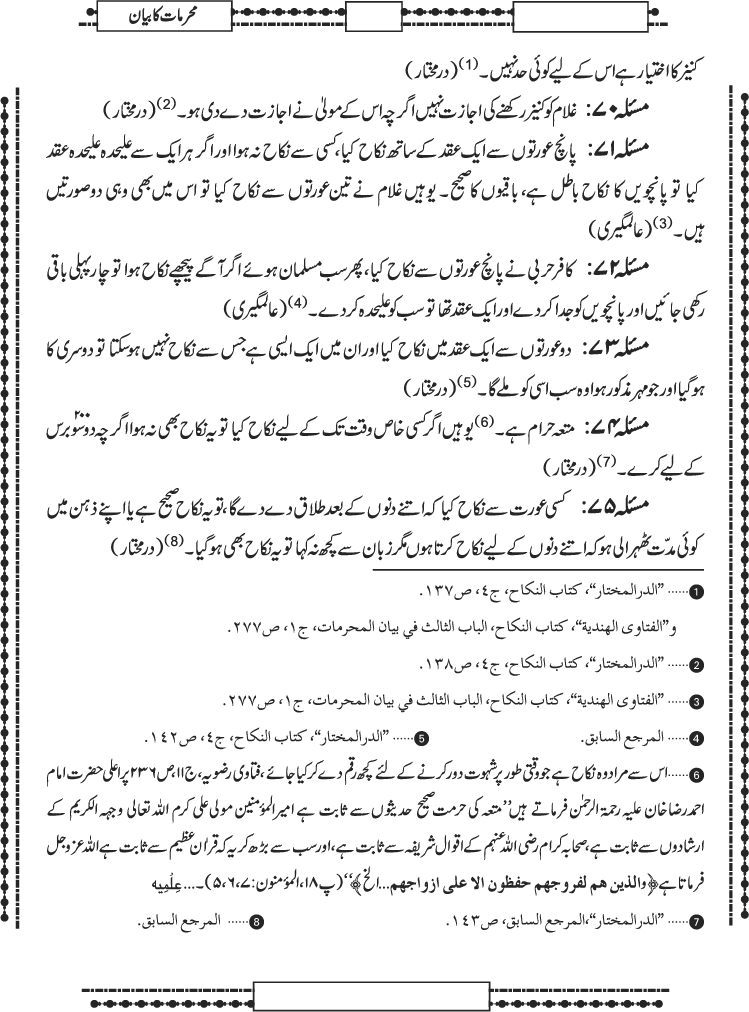 محرمات کا بیان
کنیز کا اختیار ہے اس کے لیے کوئی حد نہیں۔(1) (درمختار)
مسئلہ ۷۰: غلام کو کنیز رکھنے کی اجازت نہیں اگرچہ اس کے مولیٰ نے اجازت دے دی ہو۔(2) (درمختار)
مسئلہ ۷۱: پانچ عورتوں سے ایک عقد کے ساتھ نکاح کیا، کسی سے نکاح نہ ہوا اور اگر ہر ایک سے علیحدہ علیحدہ عقد
کیا تو پانچویں کا نکاح باطل ہے، باقیوں کا صحیح۔ یوہیں غلام نے تین عورتوں سے نکاح کیا تو اس میں بھی وہی دو صورتیں
ہیں۔(3) (عالمگیری)
مسئلہ ۷۲: کافر حربی نے پانچ عورتوں سے نکاح کیا، پھر سب مسلمان ہوئے اگر آگے پیچھے نکاح ہوا تو چار پہلی باقی
رکھی جائیں اور پانچویں کو جدا کر دے اور ایک عقد تھا تو سب کو علیحدہ کر دے۔(4) (عالمگیری)
مسئلہ ۷۳: دو عورتوں سے ایک عقد میں نکاح کیا اور ان میں ایک ایسی ہے جس سے نکاح نہیں ہوسکتا تو دوسری کا
ہوگیا اور جو مہر مذکور ہوا وہ سب اسی کو ملے گا۔(5) (درمختار)
مسئلہ ۷۴: متعہ حرام ہے۔(6) یوہیں اگر کسی خاص وقت تک کے لیے نکاح کیا تو یہ نکاح بھی نہ ہوا اگرچہ دو سو ۲۰۰ برس
کے لیے کرے۔(7) (درمختار)
مسئلہ ۷۵: کسی عورت سے نکاح کیا کہ اتنے دنوں کے بعد طلاق دے دے گا، تو یہ نکاح صحیح ہے یا اپنے ذہن میں
کوئی مدّت ٹھہرالی ہو کہ اتنے دنوں کے لیے نکاح کرتا ہوں مگر زبان سے کچھ نہ کہا تو یہ نکاح بھی ہوگیا۔(8) (درمختار)
1 ...... ”الدرالمختار“، کتاب النکاح، ج٤، ص١٣٧.
و”الفتاوی الهندیة“، کتاب النکاح، الباب الثالث في بیان المحرمات، ج١، ص٢٧٧.
2 ...... ”الدرالمختار“، کتاب النکاح، ج٤، ص١٣٨.
3 ...... ”الفتاوی الهندیة“، کتاب النکاح، الباب الثالث في بیان المحرمات، ج١، ص٢٧٧.
4 ...... المرجع السابق. 5 ...... ”الدرالمختار“، کتاب النکاح، ج٤، ص١٤٢.
6 ...... اس سے مراد وہ نکاح ہے جو وقتی طور پر شہوت دور کرنے کے لئے کچھ رقم دے کر کیا جائے، فتاوی رضویہ، ج۱۱، ص۲۳۶ پر اعلی حضرت امام
احمد رضا خان علیہ رحمۃ الرحمٰن فرماتے ہیں ”متعہ کی حرمت صحیح حدیثوں سے ثابت ہے امیرالمؤمنین مولی علی کرم اللہ تعالی وجہہ الکریم کے
ارشادوں سے ثابت ہے، صحابہ کرام رضی اللہ عنہم کے اقوال شریفہ سے ثابت ہے، اور سب سے بڑھ کر یہ کہ قرآن عظیم سے ثابت ہے اللہ عزوجل
فرماتا ہے ﴿والذین هم لفروجهم حفظون الا علی ازواجهم... الخ﴾“ (پ۱۸، المؤمنون: ۵،۶،۷)۔... عِلْمِیه
7 ...... ”الدرالمختار“،المرجع السابق، ص١٤٣. 8 ...... المرجع السابق.